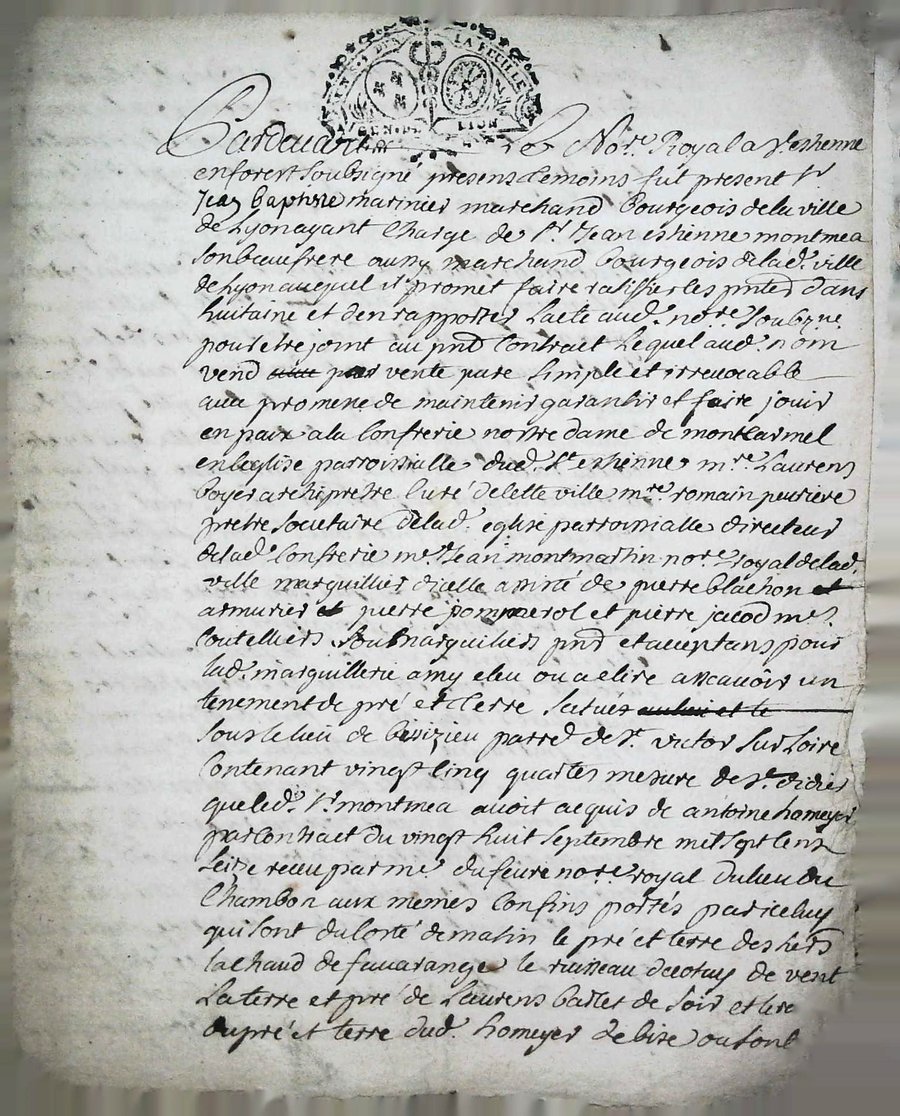 UN S. 4 D. LA FEUILLE
GEN. DE LION
Pardevant le Nore. Royal a st estienne
enforest soubsigné presens temoins fut present sr
Jean baptiste marinier marchand bourgeois de la ville
de Lyon ayant Charge de sr. Jean estienne montmea
son beau frere aussy marchand bourgeois de lad. ville
de Lyon auquel il promet faire ratiffier les pntes dans
huitaine et den rapporter lacte aud. nore. soubzne.
pour etre joint au pnt Contract Lequel aud. nom
vend par vente pure simple et irrevocable
avec promesse de maintenir garantir et faire jouir
en paix a la Confrerie nostre dame de montcarmel
en leglise parroissialle dud. st estienne mre. Laurens
boyer archiprestre Curé de cette ville mre romain
pretre societaire de lad. eglise parroissialle directeur
de lad. Confrerie me. Jean montmartin nore. royal de lad.
ville marguillier dicelle assisté de pierre blachon et
armurier et pierre pommerol et pierre jacod mes.
Coutelliers soubmarguiliers pnt et acceptans pour
lad. marguillerie amy eleu ou a elire assavoir un
tenement de pré et terre scitués au lieu et le
sous le lieu de bisizieu parred de st. victor sur Loire
Contenant vingt cinq quartes mesure de st. didier
que led. sr. montmea avoit acquis de antoine homeyer
par Contract du vingt huit septembre mil sept cens
seize receu par me. dufeure nore. royal du lieu du
Chambon aux memes Confins portés par iceluy
qui sont du Costé de matin le pré et terre des hers
lachaud de favarange le ruisseau de de vent
La terre et pré de Laurens barlet de soir et
ou pré et terre dud. homeyer de bise ou sont